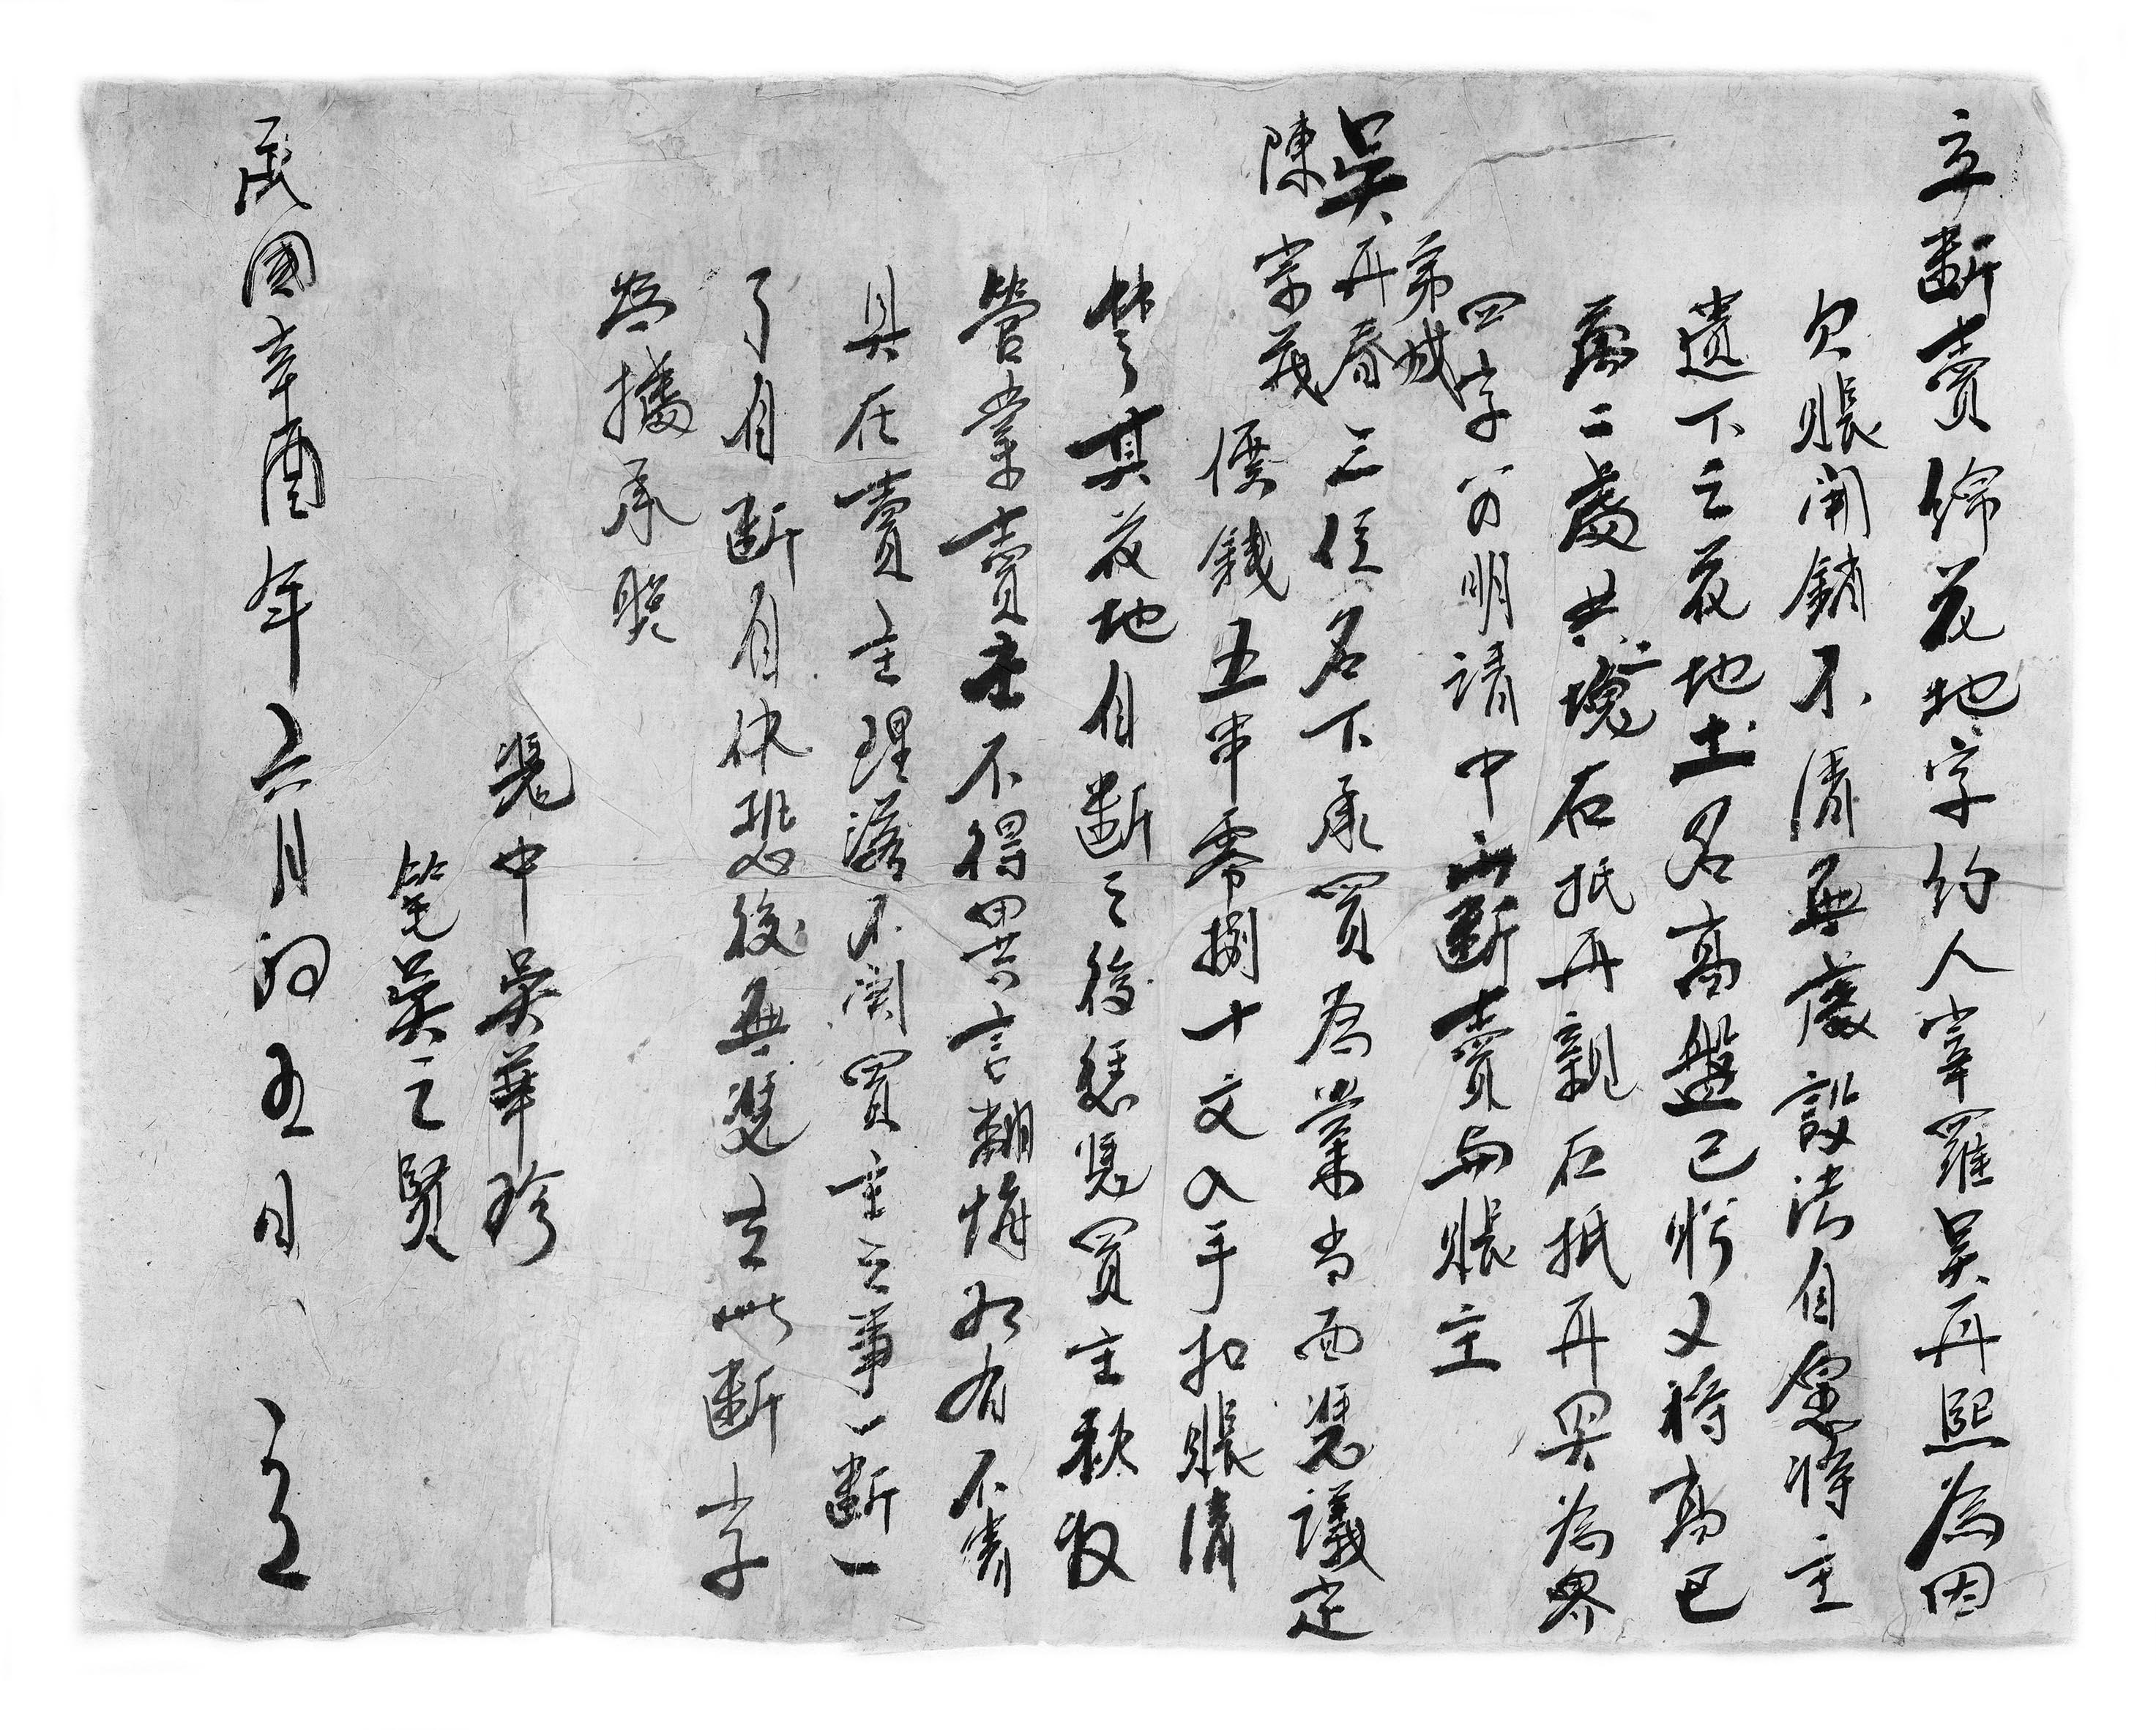 立斷賣綿花地字約人宰羅吳再熙為因
欠賬開銷不清無處設法自愿將主
遺下之花地土名高盤已虧又將高已
為二處共二塊右抵再親右抵再吳為界
四字分明請中山斷賣與賬主
弟成
吳再春三位名下承買為業当面憑議定
陳宗義價錢五串零捌十文入手扣賬清
楚其花地自斷之後恁憑買主耕收
管業賣主不得異言翻悔如有不清
具在賣主理落不関買主之事一斷一
了自斷自休恐後無憑立此斷字
為據承照
憑中吳華珍
筆吳之賢
民國辛酉年六月初五日 立